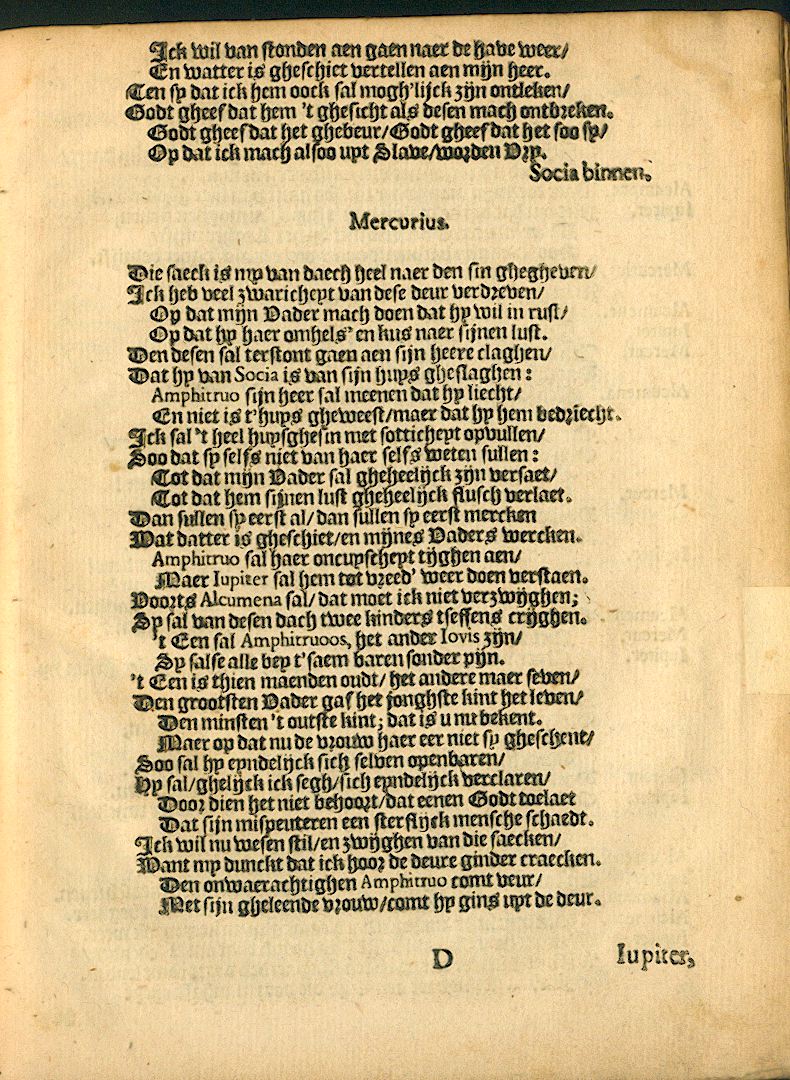 Ick wil van stonden aen gaen naer de have weer/
En watter is gheschict vertellen aen mijn heer.
Ten sy dat ick hem oock sal mogh'lijck zijn ontleken/
Godt gheef dat hem 't ghesicht als desen mach ontbreken.
Godt gheef dat het ghebeur/Godt gheef dat het soo sy/
Op dat ick mach alsoo uyt Slave/worden Vry.
Socia binnen.
Mercurius.
Die saeck is my van daech heel naer den sin ghegheven/
Ick heb veel zwaricheyt van dese deur verdreven/
Op dat mijn Vader mach doen dat hy wil in rust/
Op dat hy haer omhels' en kus naer sijnen lust.
Den desen sal terstont gaen aen sijn heere claghen/
Dat hy van Socia is van sijn huys gheslaghen:
Amphitruo sijn heer sal meenen dat hy liecht/
En niet is t'huys gheweest/maer dat hy hem bedriecht.
Ick sal 't heel huysghesin met sotticheyt opvullen/
Soo dat sy selfs niet van haer selfs weten sullen:
Tot dat mijn Vader sal gheheelijck zijn versaet/
Tot dat hem sijnen lust gheheelijck flusch verlaet.
Dan sullen sy eerst al/dan sullen sy eerst mercken
Wat datter is gheschiet/en mijnes Vaders wercken.
Amphitruo sal haer oncuyscheyt tijghen aen/
Maer Iupiter sal hem tot vreed' weer doen verstaen.
Voorts Alcumena sal/dat moet ick niet verzwijghen;
Sy sal van desen dach twee kinders tseffens crijghen.
't Een sal Amphitruoos, het ander Iovis zijn/
Sy salse alle bey t'saem baren sonder pijn.
't Een is thien maenden oudt/het andere maer seven/
Den grootsten Vader gaf het jonghste kint het leven/
Den minsten 't outste kint; dat is u nu bekent.
Maer op dat nu de vrouw haer eer niet sy gheschent/
Soo sal hy eyndelijck sich selven openbaren/
Hy sal/ghelijck ick segh/sich eyndelijck verclaren/
Door dien het niet behoort/dat eenen Godt toelaet
Dat sijn mispeuteren een sterflijck mensche schaedt.
Ick wil nu wesen stil/en zwijghen van die saecken/
Want my dunckt dat ick hoor de deure ginder craecken.
Den onwaerachtighen Amphitruo comt veur/
Met sijn gheleende vrouw/comt hy gins uyt de deur.
D
Iupiter,